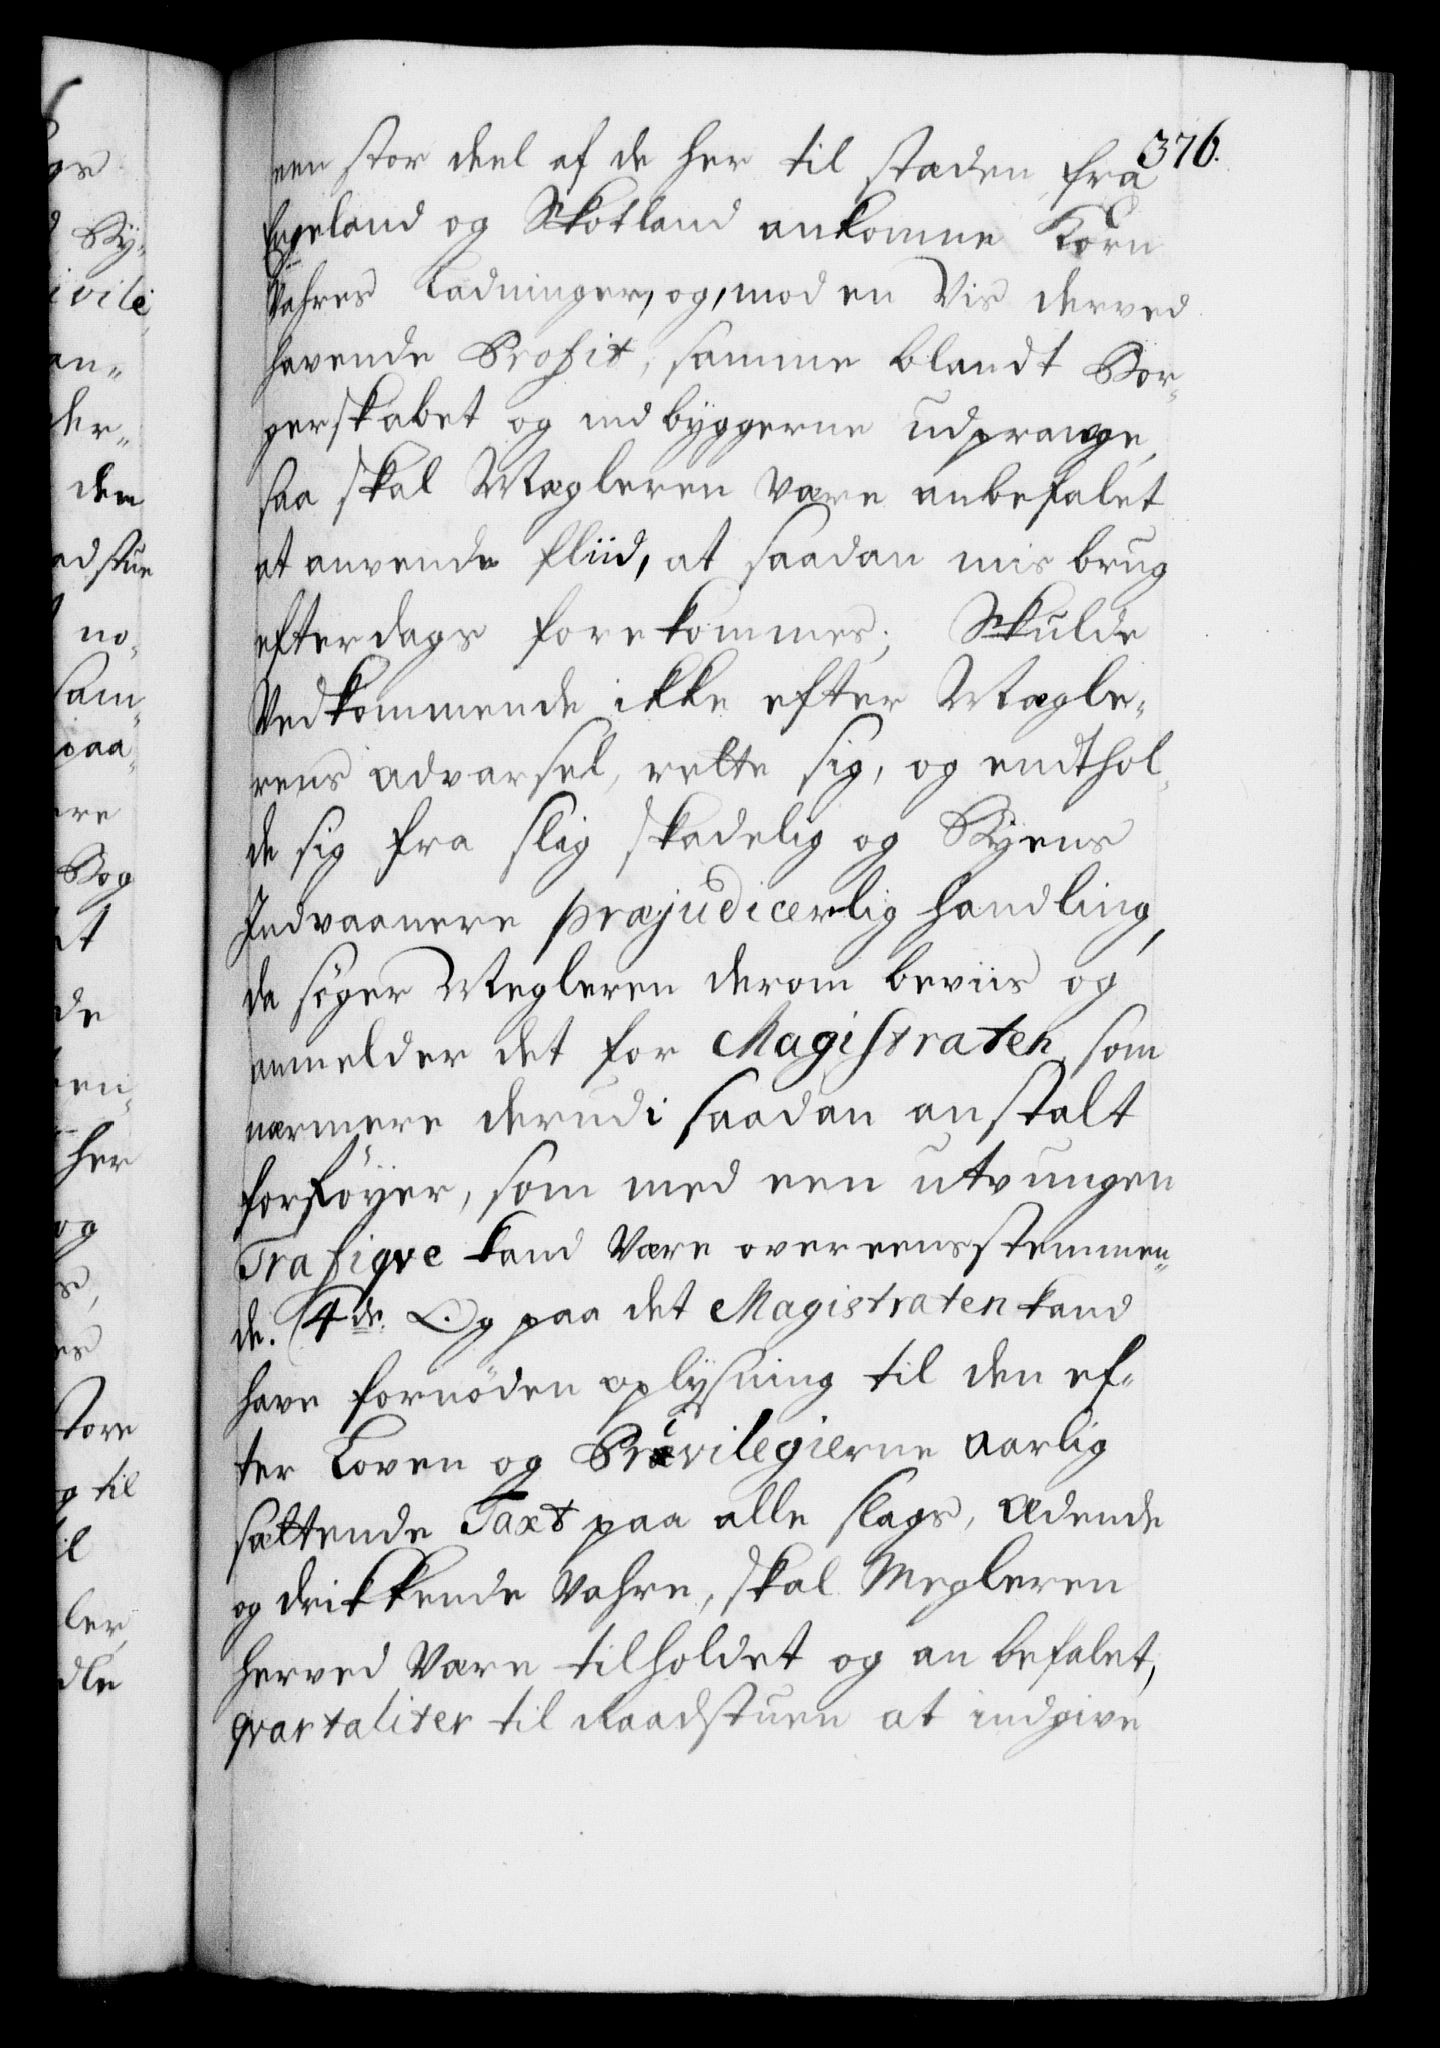 376.
een stor deel af de her til staden fra
Engeland og Skotland ankomne Korn
Vahres Ladninger, og, mod en Vis derved
havende Profit, samme blandt Bor„
gerskabet og indbyggerne udprange,
saa skal Mægleren være anbefalet
at anvende fliid, at saadan misbrug
efterdags forekommes; Skulde
Vedkommende ikke efter Mægle„
rens advarsel, rette sig, og endthol„
de sig fra slig skadelig og Byens
Indvaanere præjudicerlig handling,
da söger Megleren derom beviis og
anmelder det for Magistraten, som
nærmere derudi saadan anstalt
forföyer, som med een utvungen
Trafiqve kand være overeensstemmen„
de. 4de. Og paa det Magistraten kand
have fornöden oplysning til den ef„
ter Loven og Privilegierne aarlig
sættende Taxt paa alle slags, ædende
og drikkende Vahre, skal Megleren
herved være tilholdet og anbefalet,
qvartaliter til Raadstuen at indgive